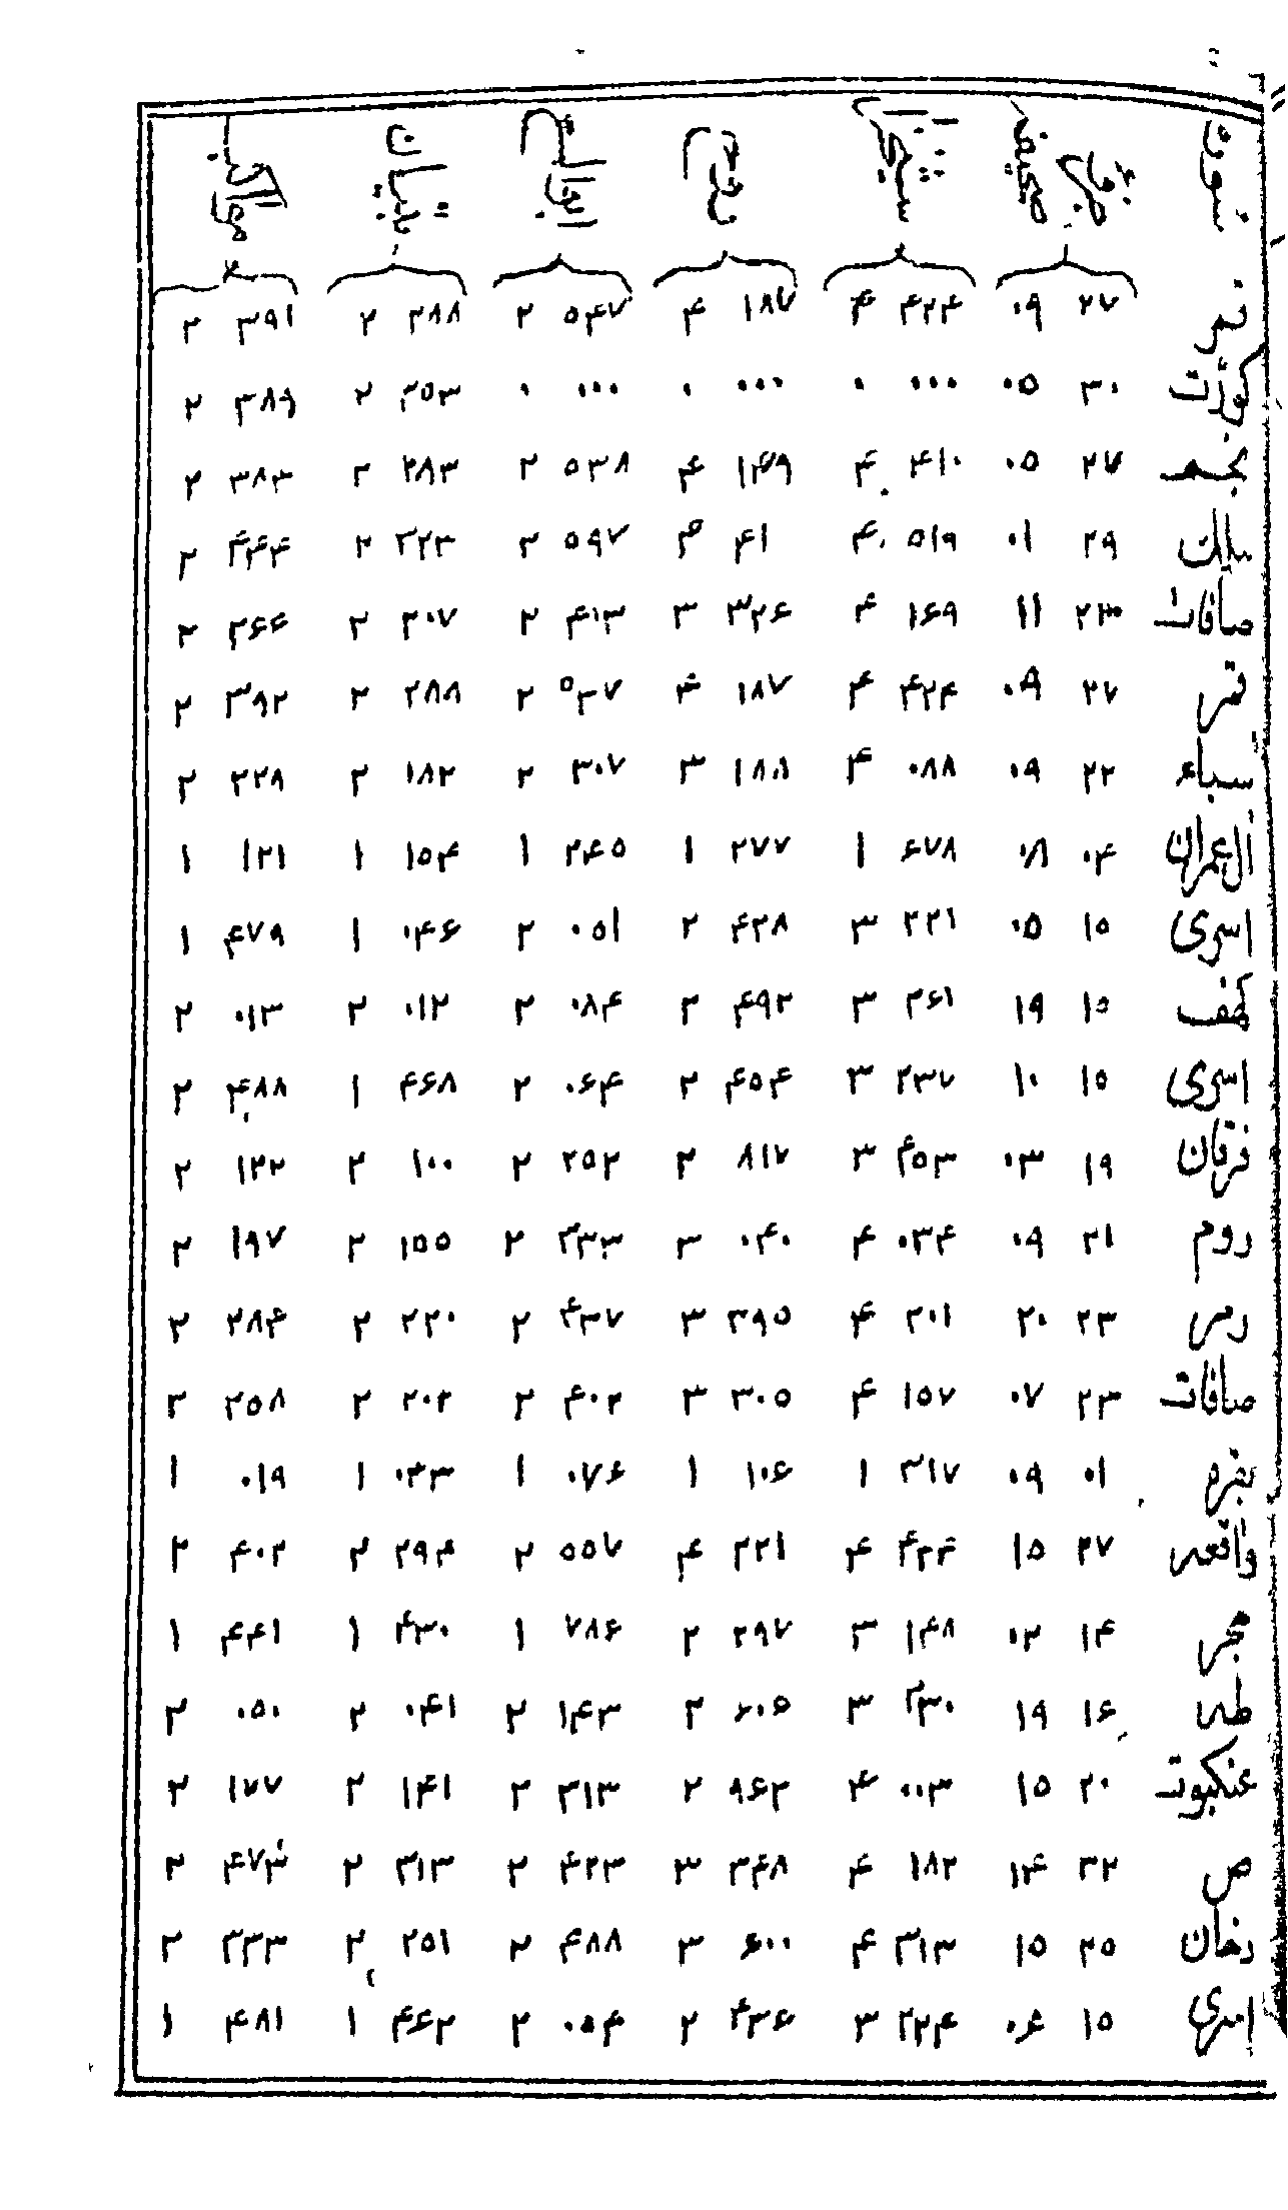 سورة جزو صحیفه شیخزاده روح ابوالسعود تبیان مواکب
قمر ۲۷ ۰۹ ۴۲۴ ۴ ۱۸۷ ۴ ۵۴۷ ۲ ۲۸۸ ۲ ۳۹۱ ۲
کورت ۳۰ ۰۵ ۰۰۰ ۰ ۰۰۰ ۰ ۰۰۰ ۰ ۳۵۳ ۲ ۳۸۹ ۲
نجم ۲۷ ۰۵ ۴۱۰ ۴ ۱۴۹ ۴ ۵۳۸ ۲ ۲۸۳ ۲ ۳۸۳ ۲
ملك ۲۹ ۰۱ ۵۱۹ ۴ ۴۱ ۴ ۵۹۷ ۲ ۳۲۳ ۲ ۴۴۴ ۲
صافات ۲۳ ۱۱ ۱۶۹ ۴ ۳۲۶ ۳ ۴۱۳ ۲ ۲۰۷ ۲ ۲۶۴ ۲
قمر ۲۷ ۰۹ ۴۲۴ ۴ ۱۸۷ ۴ ۵۳۷ ۲ ۲۸۸ ۲ ۳۹۲ ۲
سباء ۲۲ ۰۹ ۰۸۸ ۴ ۱۸۸ ۳ ۳۰۷ ۲ ۱۸۲ ۲ ۲۲۸ ۲
ال عمران ۰۴ ۰۸ ۶۷۸ ۱ ۲۷۷ ۱ ۲۴۵ ۱ ۱۵۴ ۱ ۱۲۱ ۱
اسری ۱۵ ۰۵ ۲۲۱ ۳ ۴۲۸ ۲ ۰۵۱ ۲ ۰۴۶ ۱ ۴۷۹ ۱
کهف ۱۵ ۱۹ ۲۶۱ ۳ ۴۹۲ ۲ ۰۸۴ ۲ ۰۱۲ ۲ ۰۱۳ ۲
اسری ۱۵ ۱۰ ۲۳۷ ۳ ۴۵۴ ۲ ۰۶۴ ۲ ۴۶۸ ۱ ۴۸۸ ۲
فرقان ۱۹ ۰۳ ۴۵۳ ۳ ۸۱۷ ۲ ۲۵۲ ۲ ۱۰۰ ۲ ۱۲۲ ۲
روم ۲۱ ۰۹ ۰۳۴ ۴ ۰۴۰ ۳ ۳۳۳ ۲ ۱۵۵ ۲ ۱۹۷ ۲
زمر ۲۳ ۲۰ ۲۰۱ ۴ ۳۹۵ ۳ ۴۳۷ ۲ ۲۲۰ ۲ ۲۸۴ ۲
صافات ۲۳ ۰۷ ۱۵۷ ۴ ۳۰۵ ۳ ۴۰۲ ۲ ۲۰۲ ۲ ۲۵۸ ۲
بقره ۰۱ ۰۹ ۳۱۷ ۱ ۱۰۶ ۱ ۰۷۶ ۱ ۰۳۳ ۱ ۰۱۹ ۱
واقعه ۲۷ ۱۵ ۴۳۴ ۴ ۲۲۱ ۴ ۵۵۷ ۲ ۲۹۴ ۲ ۴۰۲ ۲
حجر ۱۴ ۰۲ ۱۴۸ ۳ ۲۹۷ ۲ ۷۸۶ ۱ ۴۳۰ ۱ ۴۴۱ ۱
طه ۱۶ ۱۹ ۳۳۰ ۳ ۶۰۵ ۲ ۱۴۳ ۲ ۰۴۱ ۲ ۰۵۰ ۲
عنکبوت ۲۰ ۱۵ ۰۰۳ ۴ ۹۶۲ ۲ ۳۱۳ ۲ ۱۴۱ ۲ ۱۷۷ ۲
ص ۳۲ ۱۴ ۱۸۲ ۴ ۳۴۸ ۳ ۴۲۳ ۲ ۳۱۳ ۲ ۴۷۳ ۲
دخان ۲۵ ۱۵ ۳۱۳ ۴ ۶۰۰ ۳ ۴۸۸ ۲ ۲۵۱ ۲ ۳۳۳ ۲
اسری ۱۵ ۰۶ ۲۲۴ ۳ ۴۳۶ ۲ ۰۵۴ ۲ ۴۶۲ ۱ ۴۸۱ ۱